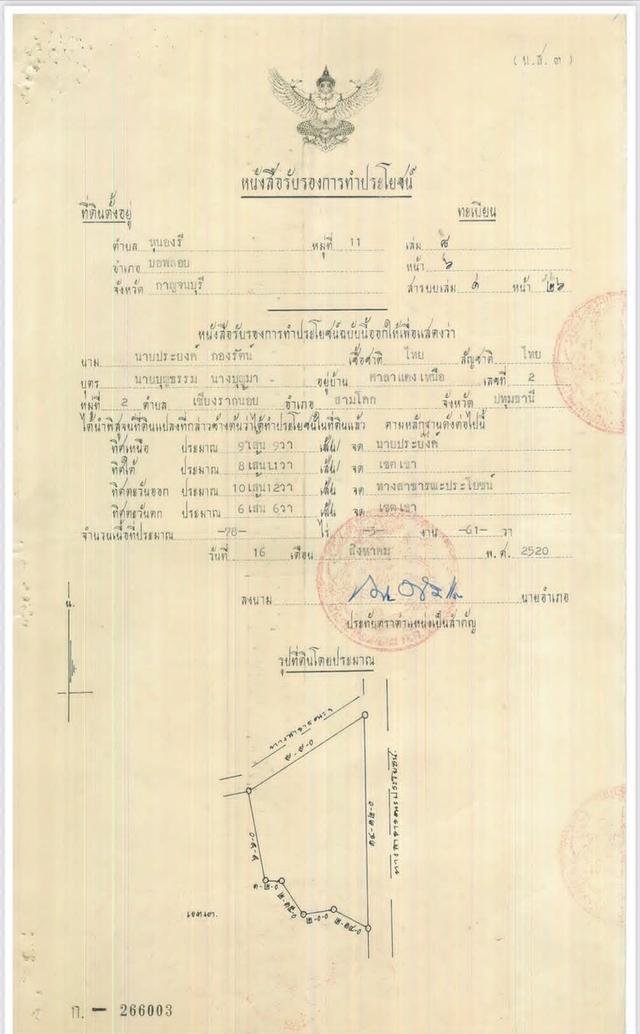 (น.ส. ๓)
หนังสือรับรองการทำประโยชน์
ที่ดินตั้งอยู่ ทะเบียน
ตำบล หนองรี หมู่ที่ 11 เล่ม ๘
อำเภอ บอพลอย หน้า ๖
จังหวัด กาญจนบุรี สารบบเล่ม ๑ หน้า ๒๖
หนังสือรับรองการทำประโยชน์ฉบับนี้ออกให้เพื่อแสดงว่า
นาม นายประยงค์ กองรัตน์ เชื้อชาติ ไทย สัญชาติ ไทย
บุตร นายบุญธรรม นางบุญมา อยู่บ้าน ศาลาแดงเหนือ เลขที่ 2
หมู่ที่ 2 ตำบล เชียงรากน้อย อำเภอ สามโคก จังหวัด ปทุมธานี
ได้นำพิสูจน์ที่ดินแปลงที่กล่าวข้างต้นว่าได้ทำประโยชน์ในที่ดินแล้ว ตามหลักฐานดังต่อไปนี้
ทิศเหนือ ประมาณ 9 เส้น 9 วา เส้น/ จด นายประยงค์
ทิศใต้ ประมาณ 8 เส้น 11 วา เส้น/ จด เขตเขา
ทิศตะวันออก ประมาณ 10 เส้น 12 วา เส้น จด ทางสาธารณะประโยชน์
ทิศตะวันตก ประมาณ 6 เส้น 6 วา เส้น จด เขตเขา
จำนวนเนื้อที่ประมาณ -78- ไร่ -3- งาน -61- วา
วันที่ 16 เดือน สิงหาคม พ.ศ. 2520
ลงนาม นายอำเภอ
ประทับตราตำแหน่งเป็นสำคัญ
น.
รูปที่ดินโดยประมาณ
ทางสาธารณะฯ
ทางสาธารณะประโยชน์
เขตเขา
ก. — 266003